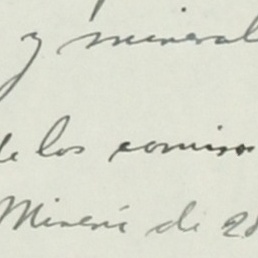 y mineral
de los comiso
Minería de 28